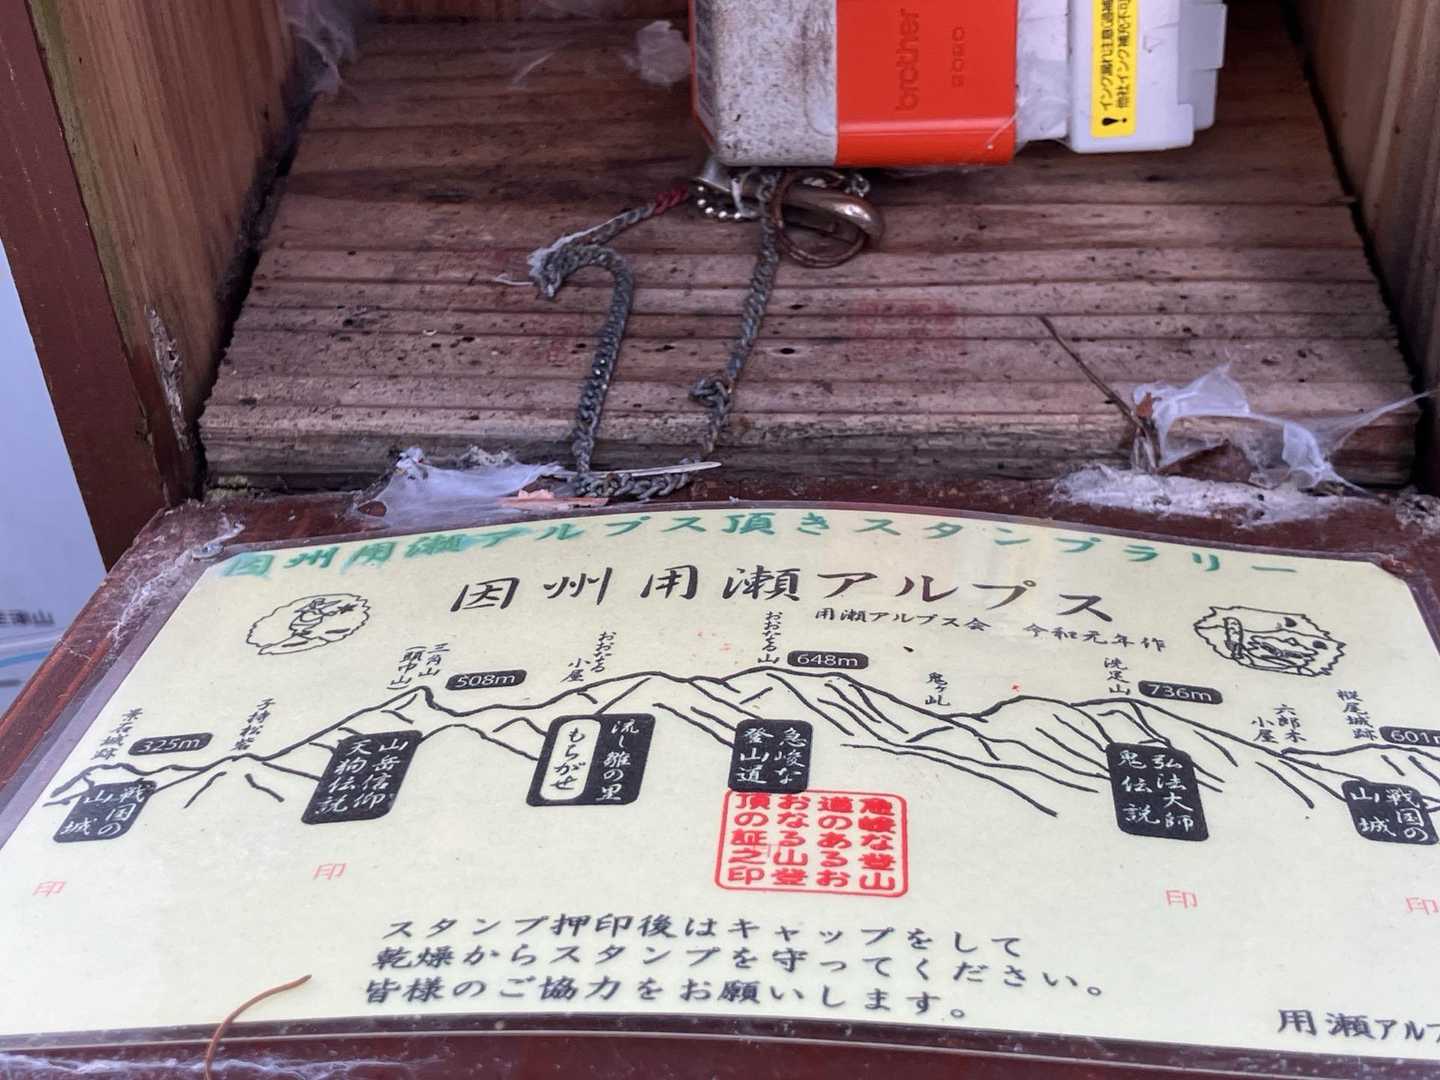 brother
2020
インク漏れ注意
他社インク補充不可
主津山
因州用瀬アルプス頂きスタンプラリー
因州用瀬アルプス
用瀬アルプス会 令和元年作
景石城跡
325m
子持松岩
三角山
(頭巾山)
508m
おおなる
小屋
おおなる山
648m
鬼ヶ乢
洗足山
736m
六郎木
小屋
樅尾城跡
601m
戦国の
山城
山岳信仰
天狗伝説
流し雛の里
もちがせ
急峻な
登山道
弘法大師
鬼伝説
戦国の
山城
急峻な登山
道のあるお
おなる山登
頂の証之印
印
印
印
印
スタンプ押印後はキャップをして
乾燥からスタンプを守ってください。
皆様のご協力をお願いします。
用瀬アルプ